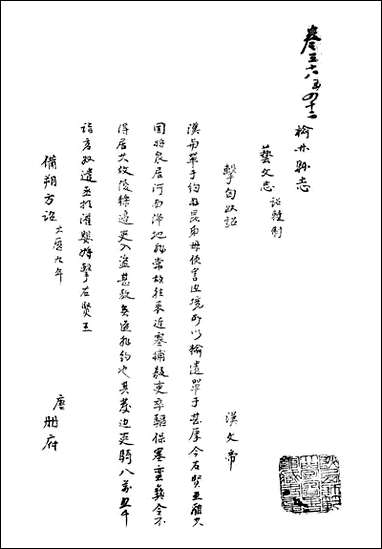 榆林縣志
藝文志 詔
擊匈奴詔 漢文帝
漢與單于約為昆弟毋使害邊境所以輸遺單于甚厚今右賢王離其
國將衆居河南降地非常故往来近塞捕殺吏卒驅保塞蠻夷令不
得居其故陵轢邊吏入盜甚敖無道非約也其發邊吏騎八萬五千
詣高奴遣丞相灌嬰將擊右賢王
備朔方詔 大曆九年 唐冊府